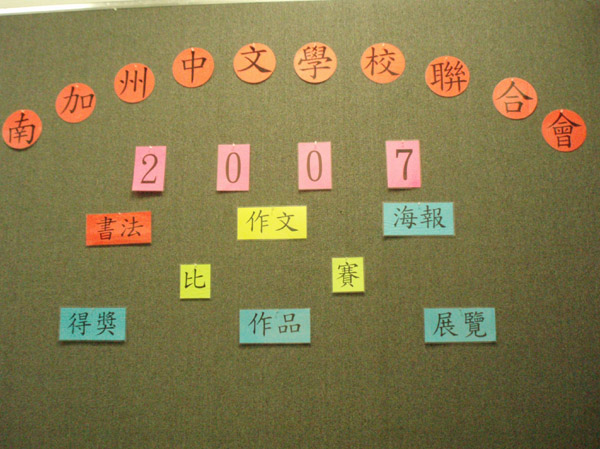 南加州中文學校聯合會
2007
書法 作文 海報
比賽
得獎 作品 展覽